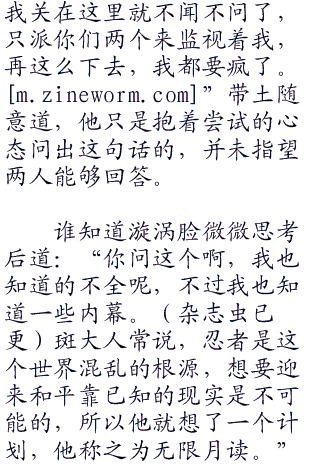 我关在这里就不闻不问了，
只派你们两个来监视着我，
再这么下去，我都要疯了。
[m.zineworm.com]”带土随
意道，他只是抱着尝试的心
态问出这句话的，并未指望
两人能够回答。
谁知道漩涡脸微微思考
后道：“你问这个啊，我也
知道的不全呢，不过我也知
道一些内幕。（杂志虫已
更）斑大人常说，忍者是这
个世界混乱的根源，想要迎
来和平靠已知的现实是不可
能的，所以他就想了一个计
划，他称之为无限月读。”